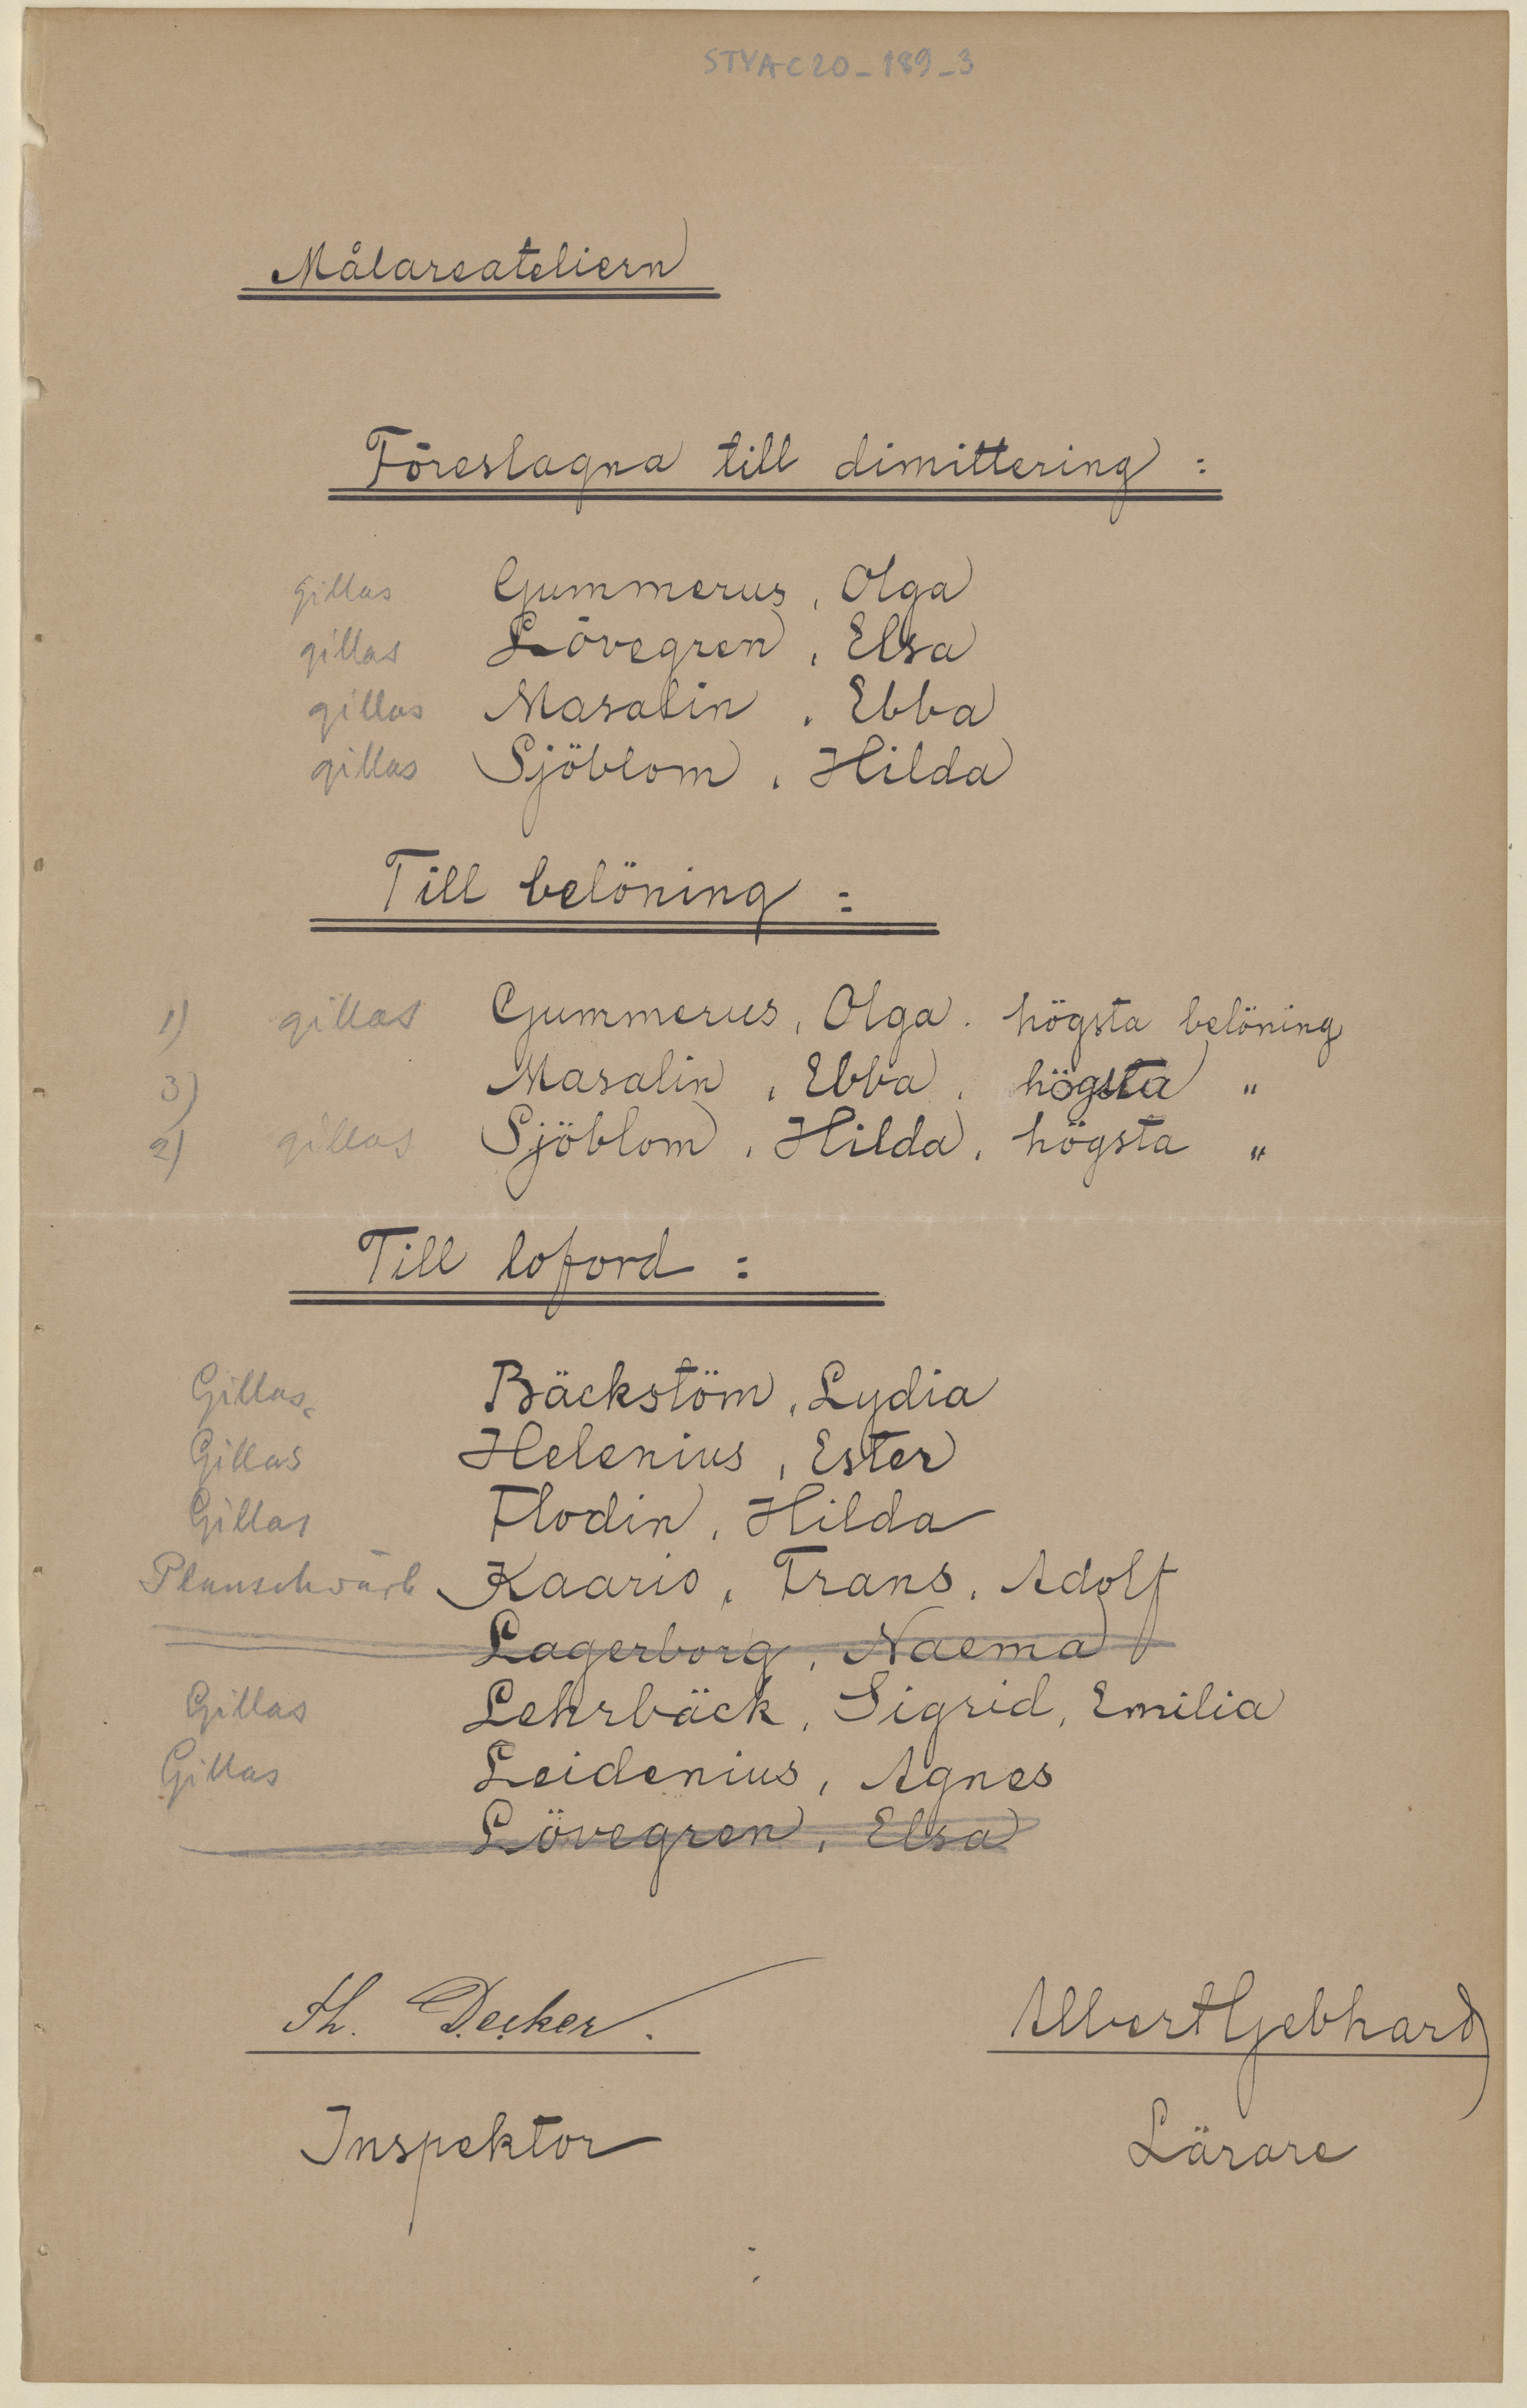 STYA C20_189_3
Målareateliern
Föreslagna till dimittering :
gillas Gummerus, Olga
gillas Lövegren, Elsa
gillas Masalin, Ebba
gillas Sjöblom, Hilda
Till belöning :
1) gillas Gummerus, Olga. högsta belöning
3) Masalin, Ebba, högsta "
2) gillas Sjöblom, Hilda, högsta "
Till loford :
Gillas. Bäckstöm, Lydia
Gillas Helenius, Ester
Gillas Flodin, Hilda
Planschvärk Kaario, Frans, Adolf
Lagerborg, Naema
Gillas Lehrbäck, Sigrid, Emilia
Gillas Leidenius, Agnes
Lövegren, Elsa
Th. Decker. Albert Gebhard
Inspektor Lärare